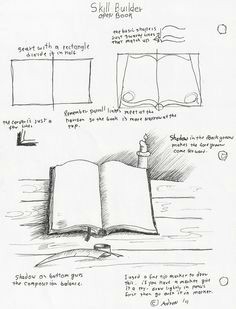 Skill Builder
open Book
Start with a rectangle
divide it in half
the basic shape is
just swervey lines
that match up
The corner is just a
few lines.
Remember parallel lines meet at the
horizon so the book is more narrow at the
top.
Shadow in the Background
makes the fore ground
come forward.
Shadow on bottom gives
the composition balance.
I used a fine tip marker to draw
this. if you have a marker give
it a try. draw lightly in pencil
first then go over it in marker.
©